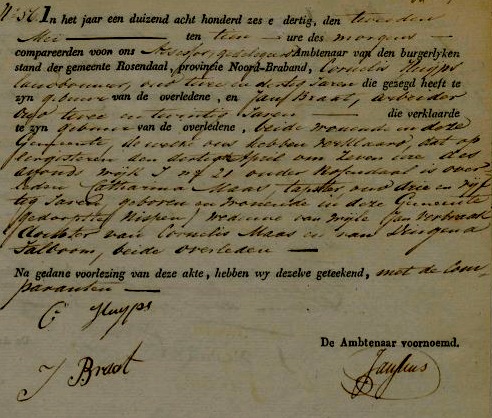 No. 56. In het jaar een duizend acht honderd zes e dertig, den tweeden
Mei ten tien ure des morgens
compareerden voor ons Ambtenaar van den burgerlyken
stand der gemeente Rosendaal, provincie Noord-Braband, Cornelis Huyps
oud twee en dertig Jaren die gezegd heeft te
zyn gebuur van de overledene, en Jan Braat, arbeider
oud twee en twintig Jaren die verklaarde
te zyn gebuur van de overledene, beide wonende in deze
Gemeente, de welke ons hebben verklaard dat op
den dertig April om zeven ure des
avonds wijk I no 21 onder Rosendaal is over-
leden Catharina Maas, tapster oud drie en vijf
tig Jaren, geboren en wonende in deze Gemeente
(gedoopt te Nispen) weduwe van wijle Jan Verbraak
dochter van Cornelis Maas en van
Talboom, beide overleden
Na gedane voorlezing van deze akte, hebben wy dezelve geteekend, met de Com-
paranten
C Huyps
De Ambtenaar voornoemd.
J Braat